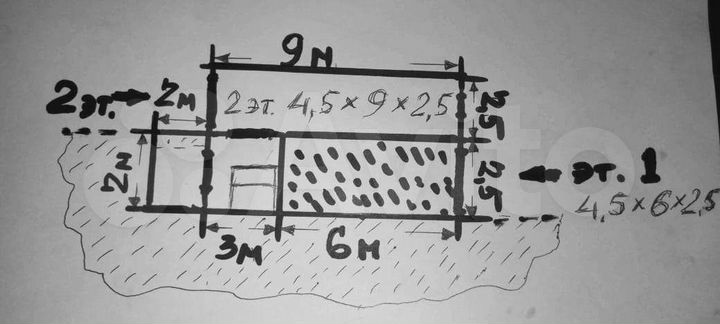 9м
2эт. 2м 2эт. 4,5×9×2,5 2,5
2м 2,5 эт. 1
4,5×6×2,5
3м 6м
Avito